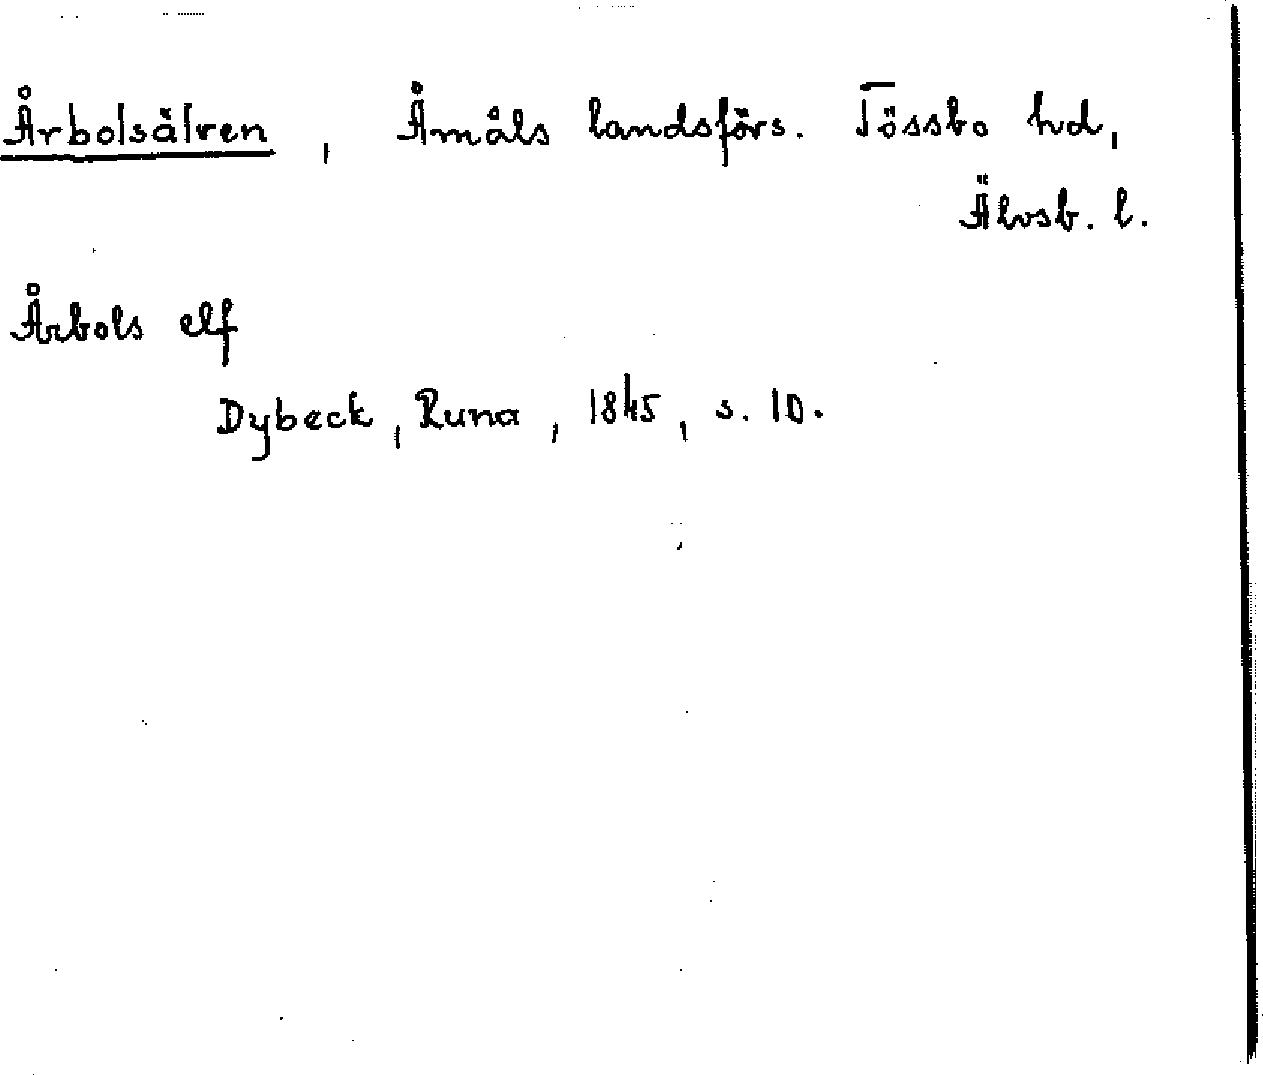 Årbolsälven, Åmåls landsförs. Tössbo hd,
Älvsb. l.
Årbols elf
Dybeck, Runa, 1845, s. 10.